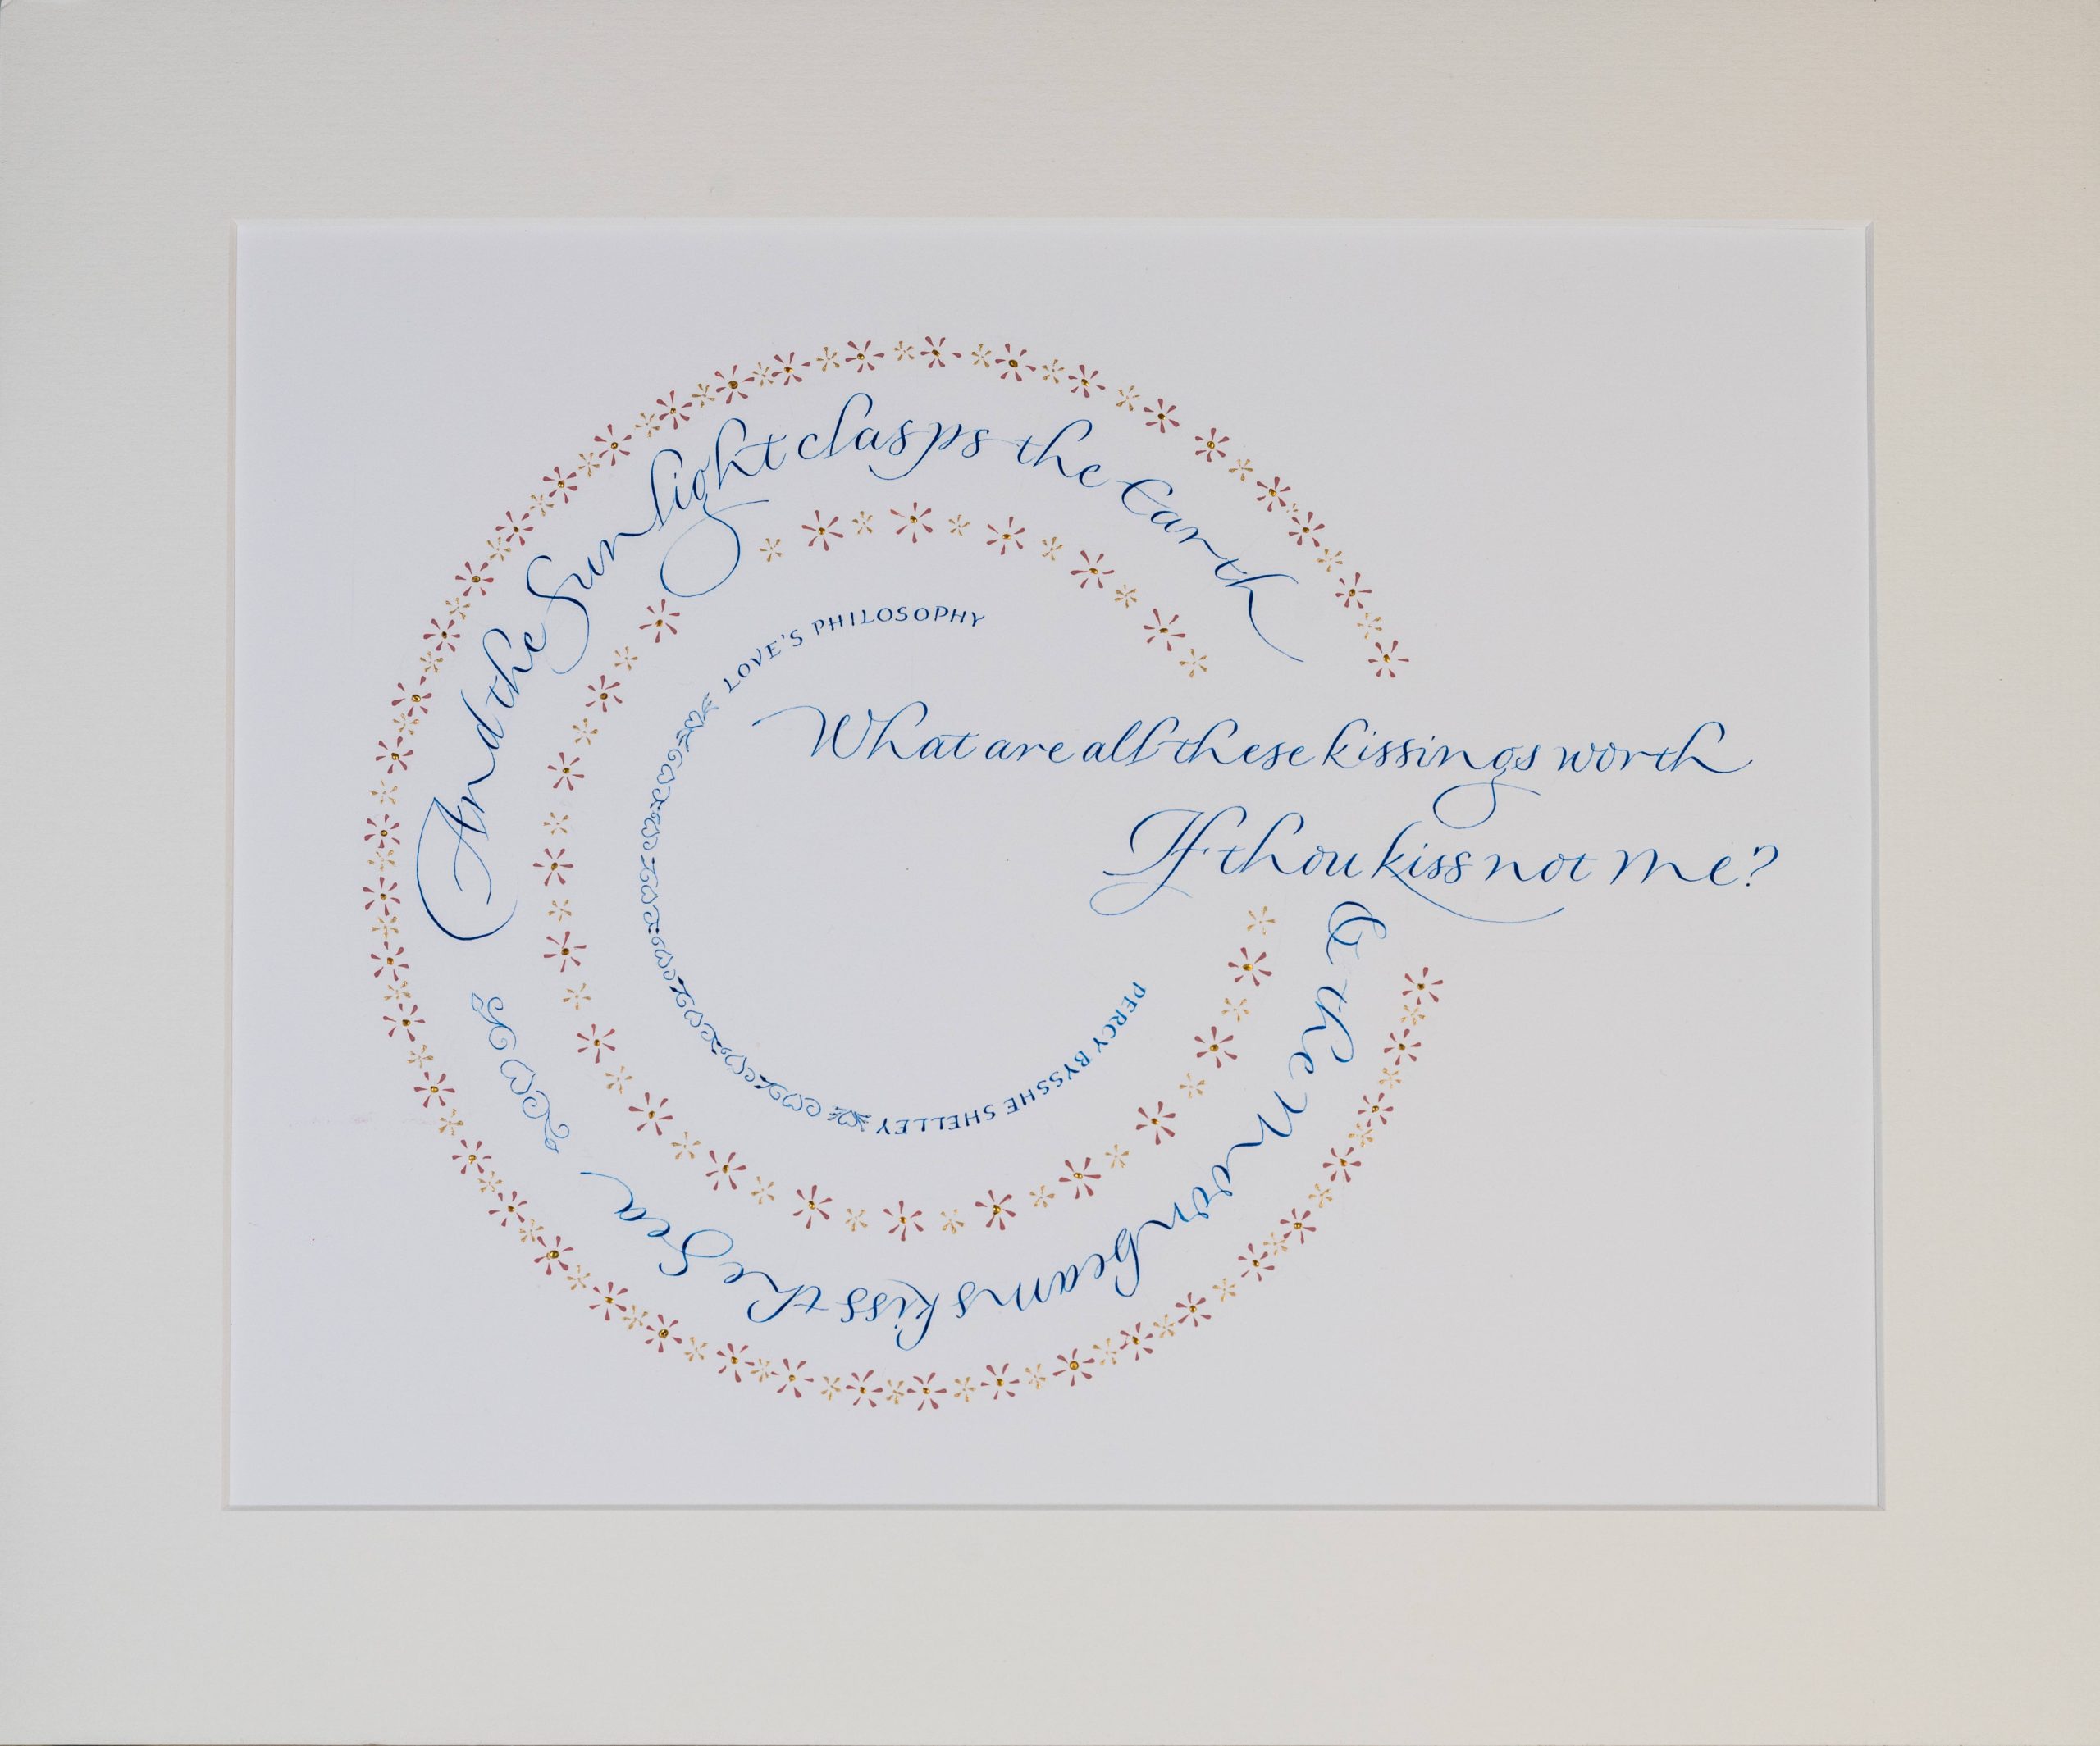 And the Sunlight clasps the Earth
& the Moonbeams kiss the Sea
What are all these kissings worth
If thou kiss not me?
LOVE'S PHILOSOPHY
PERCY BYSSHE SHELLEY